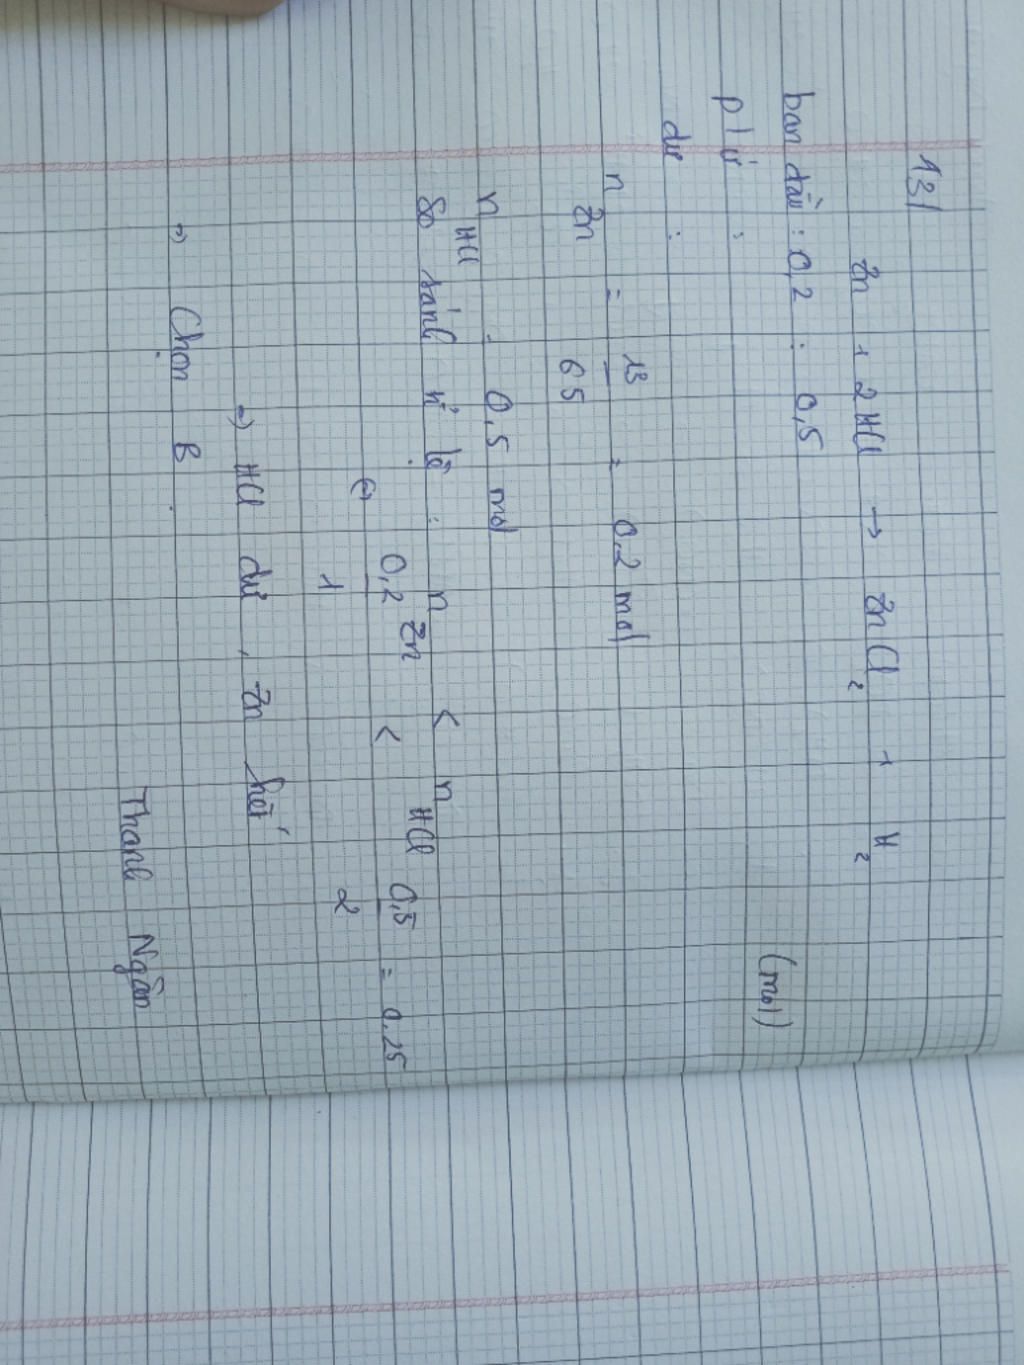 13/
Zn + 2HCl → ZnCl₂ + H₂
ban đầu : 0,2 : 0,5 (mol)
p/ứ :
dư :
n Zn = 13/65 = 0,2 mol
n HCl : 0,5 mol
So sánh tỉ lệ : n Zn < n HCl
(=) 0,2/1 < 0,5/2 = 0,25
=) HCl dư, Zn hết
=) Chọn B.
Thanh Ngân